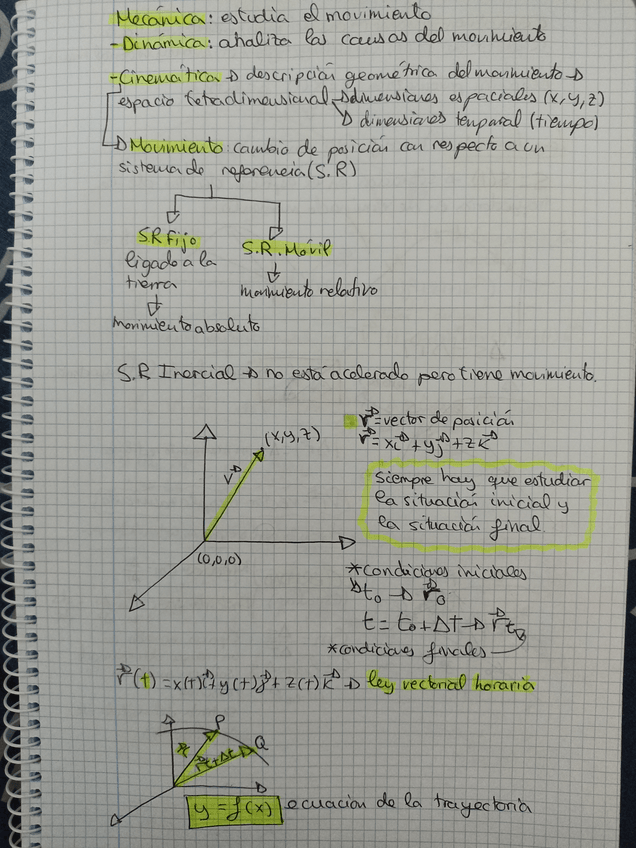 Mecánica: estudia el movimiento
-Dinámica: analiza las causas del movimiento
-Cinemática → descripción geométrica del movimiento →
espacio tetradimensional → dimensiones espaciales (x, y, z)
→ dimensiones temporal (tiempo)
→ Movimiento: cambio de posición con respecto a un
sistema de referencia (S.R)
S.R fijo
ligado a la
tierra
↓
Movimiento absoluto
S.R. Móvil
↓
movimiento relativo
S.R Inercial → no está acelerado pero tiene movimiento.
r⃗ = vector de posición
r⃗ = xi⃗ + yj⃗ + zk⃗
(x, y, z)
r⃗
(0,0,0)
Siempre hay que estudiar
la situación inicial y
la situación final.
*condiciones iniciales
Δt₀ → r⃗₀
t = t₀ + Δt → r⃗t
*condiciones finales
r⃗(t) = x(t)i⃗ + y(t)j⃗ + z(t)k⃗ → ley vectorial horaria
P
Q
r⃗
r⃗t+Δt
y = f(x) ecuación de la trayectoria